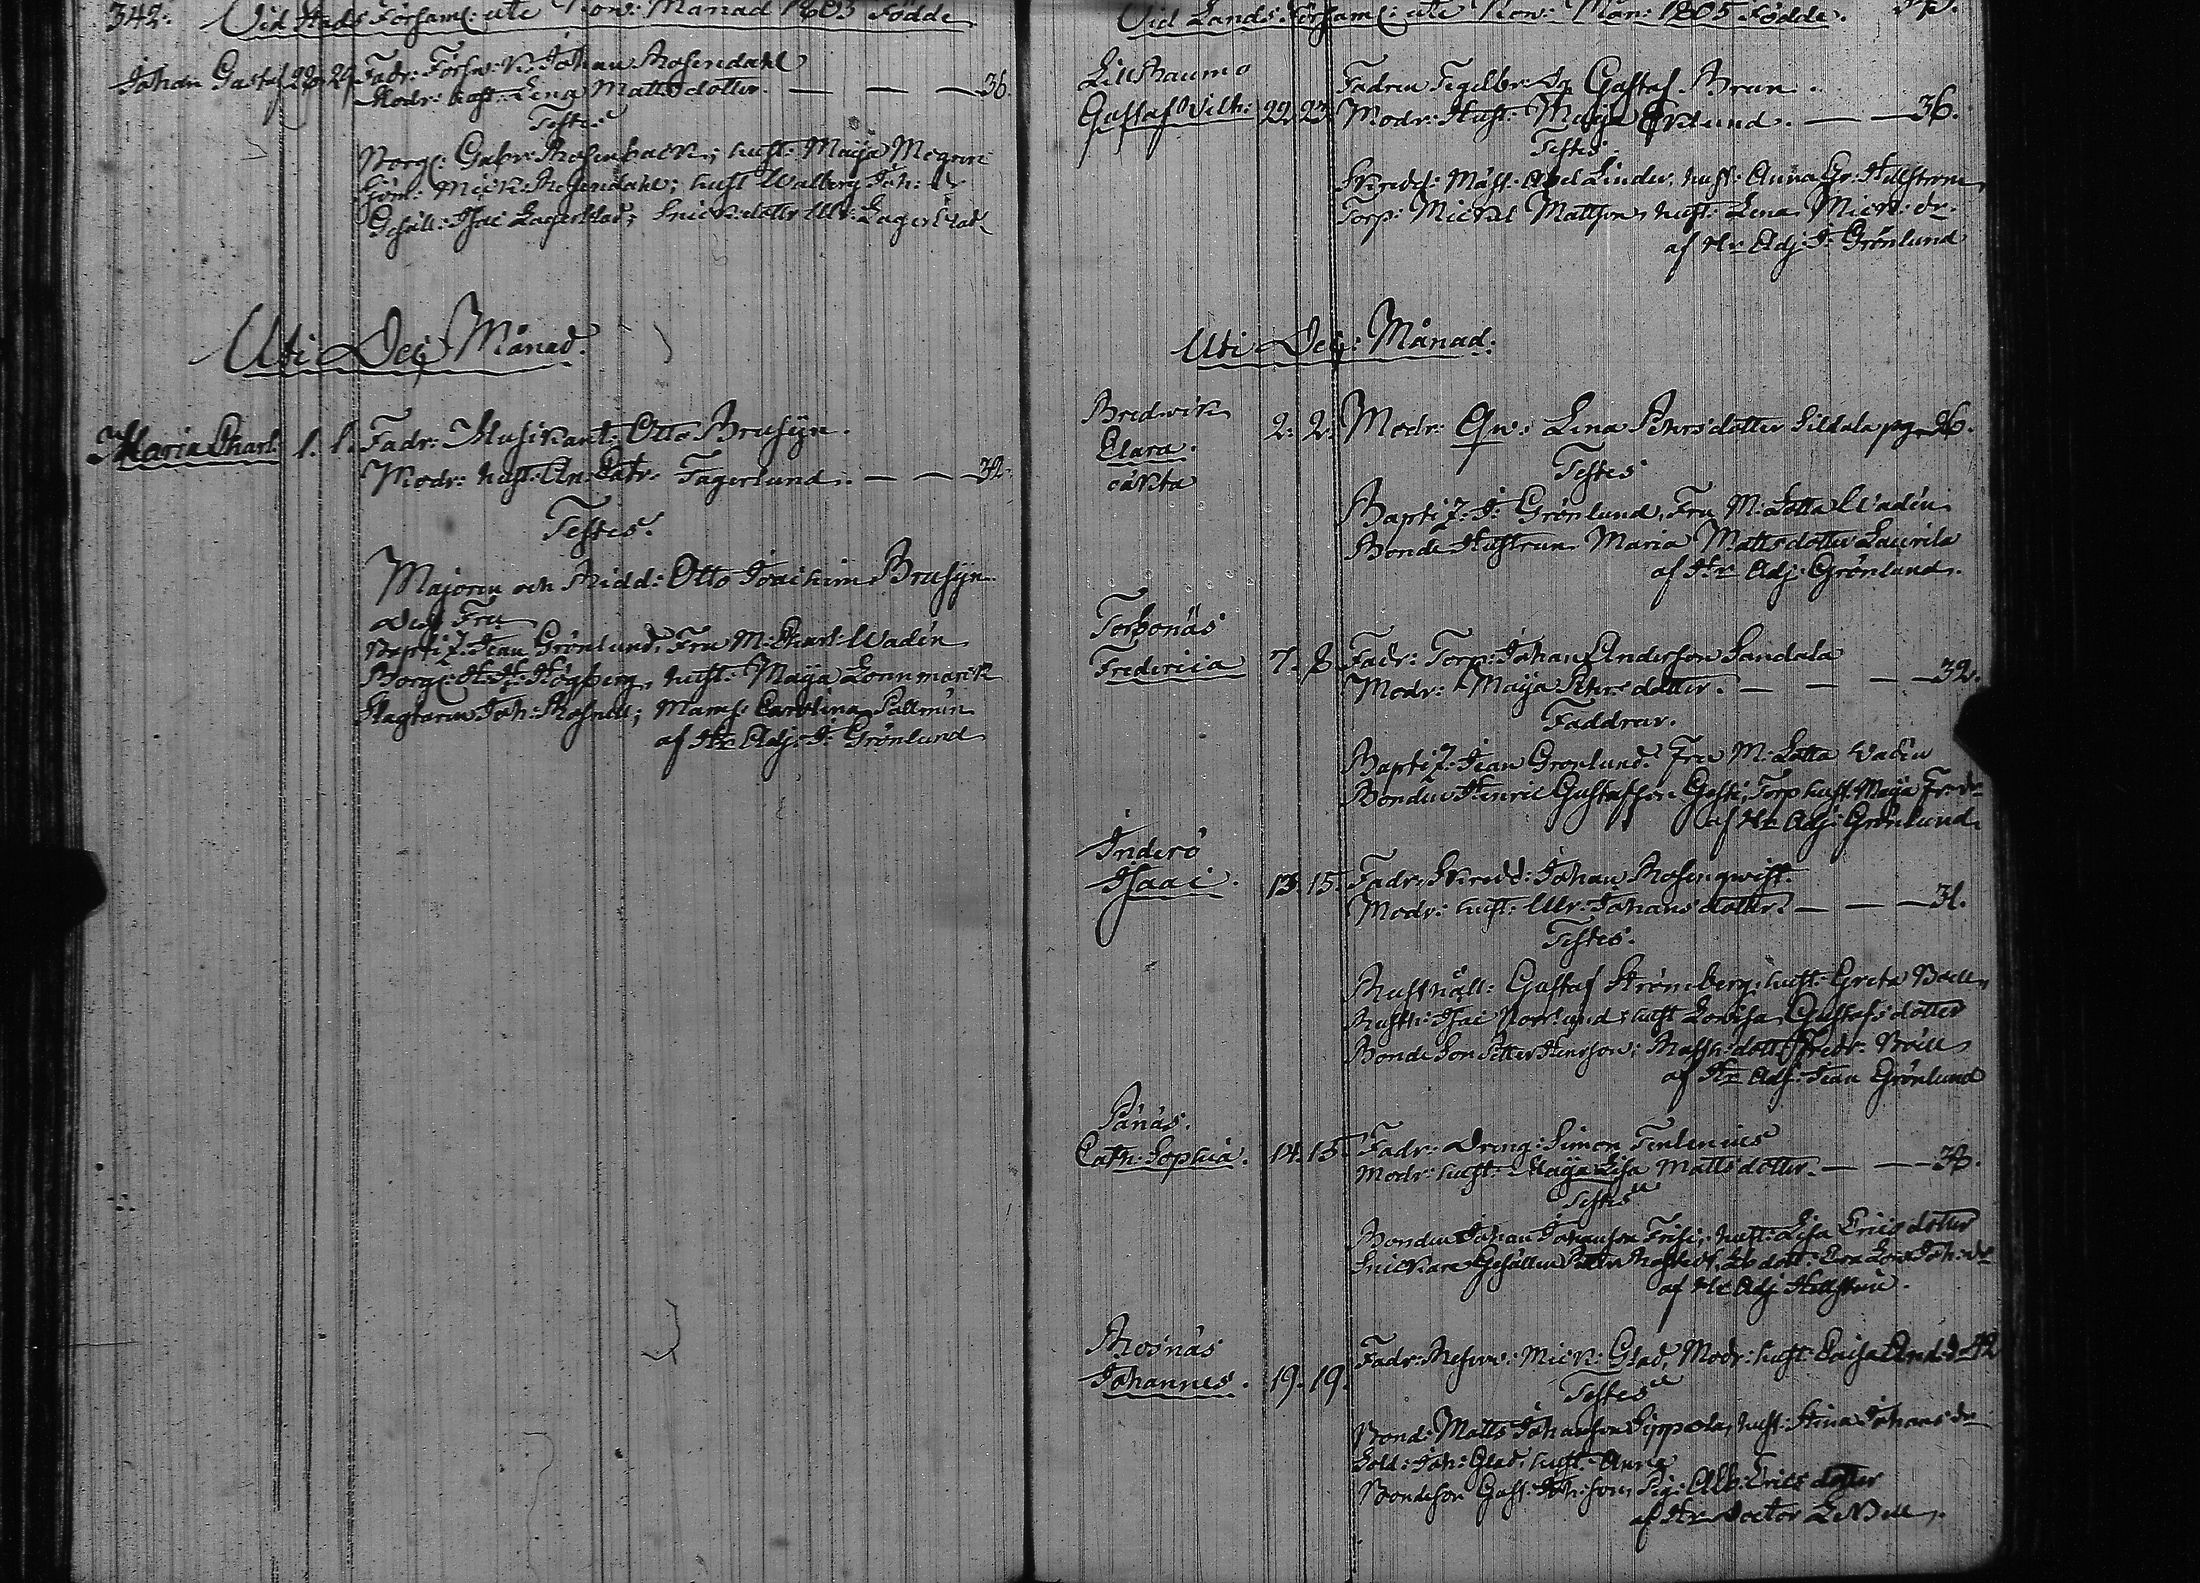 342. Vid Stads Församl: uti Nov: Månad 1805 Födde
Johan Gustaf 28. 29. Fadr: Försw: K. Johan Rosendahl
Modr: hust: Lena Mattsdotter — — — 36.
Testes
Borg: Gabr: Rosenback; hust: Maija Megren
Sjöm: Mick: Rosendahl; hust Walborg Joh: dr
Gesäll: Isac Lagerblad; Snick: dottr Ulr: Lagerblad
Uti Dec: Månad.
Maria Charl: 1. 1. Fadr: Musikant: Otto Brusijn.
Modr: hust: An: Catr: Fagerlund. — — — 32.
Testes.
Majoren och Ridd: Otto Joachim Brusijn
dess Fru
Jean Grönlund, Fru M: Charl: Wadén
Borg: H: H: Högberg, hust: Maija Lönnmarck
Slagtaren Joh: Rosnell; Mams: Carolina Pallmén
af Hr Adj: J: Grönlund
Vid Lands Församl: uti Nov: Mån: 1805 Födde.
Lill Raumo
Gustaf Wilh: 22. 23. Fadren Tegelbr: Gustaf Brun.
Modr: Hust: Maija Eklund. — — 36.
Testes.
Skredd: Mäst: Abel Linder, hust: Anna Gr: Hellström
Torp: Mickel Mattson, hust: Lena Mick: dr.
af Hr Adj: J: Grönlund
Uti Dec: Månad.
Bredwik
Clara. 2. 2. Modr: Qw: Lena Pehrsdotter Sildala 26.
oäkta
Testes
J: Grönlund, Fru M: Lotta Wadén
Bonde Hustrun Maria Mattsdotter Laurila
af Hr Adj: Grönlund.
Torsonäs
Fredericia 7. 8. Fadr: Torp: Johan Anderson Sandala
Modr: Maija Pehrsdotter. — — — 32.
Faddrar.
Jean Grönlund. Fru M: Lotta Wadén
Bonden Henric Gustafson Torp hust: Maija Fredr:
af Hr Adj: Grönlund.
Inderö
Isaac. 13. 15. Fadr: Skredd: Johan Rosenqwist
Modr: hust: Ulr: Johansdotter. — — — 31.
Testes.
Rusthåll: Gustaf Strömberg, hust: Greta Boell
Rusth: Isac Norrlund, hust Lovisa Gustafsdotter
Bonde Son Petter Henrson; Rusth: dott: Fredr: Boell
af Hr Adj: Jean Grönlund
Pånäs.
Cath: Sophia. 14. 15. Fadr: Dreng: Simon Tenlenius
Modr: hust: Maija Lisa Mattsdotter. — — — 38.
Testes
Bonden Johan Johanson Frisi, hust: Lisa Ericsdotter
Snickare Gesällen Petter dott: Eva Joh: dr
af Hr Adj: Hellström.
Rosnäs
Johannes. 19. 19. Fadr: Reserv: Mick: Glad, Modr: hust: Caisa And: d. 42
Testes
Bond: Matts Johanson Sippola, hust: Stina Johansdr
Sold: Joh: Glad, hust: Anna
Bondeson Gust: Joh: son, Pig: Alb: Ericsdotter
af Hr Doctor Lebell.